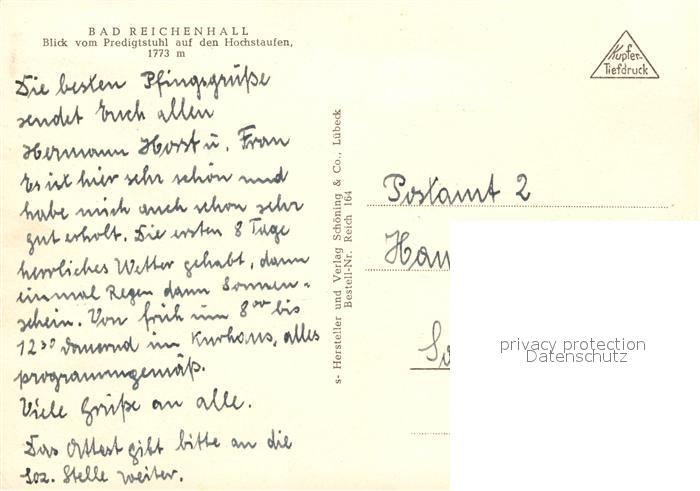 BAD REICHENHALL
Blick vom Predigtstuhl auf den Hochstaufen,
1773 m
Die besten Pfingsgrüße
sendet Euch allen
Hermann Horst u. Frau
Es ist hier sehr schön und
habe mich auch schon sehr
gut erholt. Die ersten 8 Tage
herrliches Wetter gehabt, dann
einmal Regen dann Sonnen-
schein. Von früh um 8⁰⁰ bis
12³⁰ dauernd im Kurhaus, alles
programmgemäß.
Viele Grüße an alle.
Das Attest gibt bitte an die
Soz. Stelle weiter.
s- Hersteller und Verlag Schöning & Co., Lübeck
Bestell-Nr. Reich 164
Kupfer-
Tiefdruck
Postamt 2
Han
privacy protection
Datenschutz